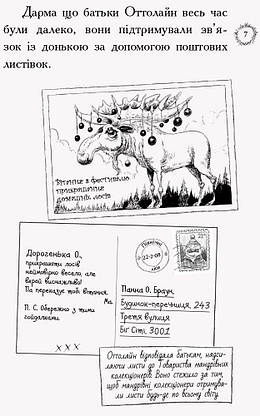 Дарма що батьки Оттолайн весь час
були далеко, вони підтримували зв'я-
зок із донькою за допомогою поштових
листівок.
7
Вітання з фестивалю
прикрашання
домашніх лосів
Дорогенька О.,
прикрашати лосів
неймовірно весело, але
вкрай виснажливо!
Па переказує тобі вітання.
Ма.
П. С. Обережно з тими
гойдалками.
X X X
22-2-08
Панна О. Браун,
Будинок-перечниця, 243
Третя вулиця
Біг Сіті, 3001
Оттолайн відповідала батькам, надси-
лаючи листи до Товариства мандрівних
колекціонерів. Воно стежило за тим,
щоб мандрівні колекціонери отримува-
ли листи будь-де по всьому світу.